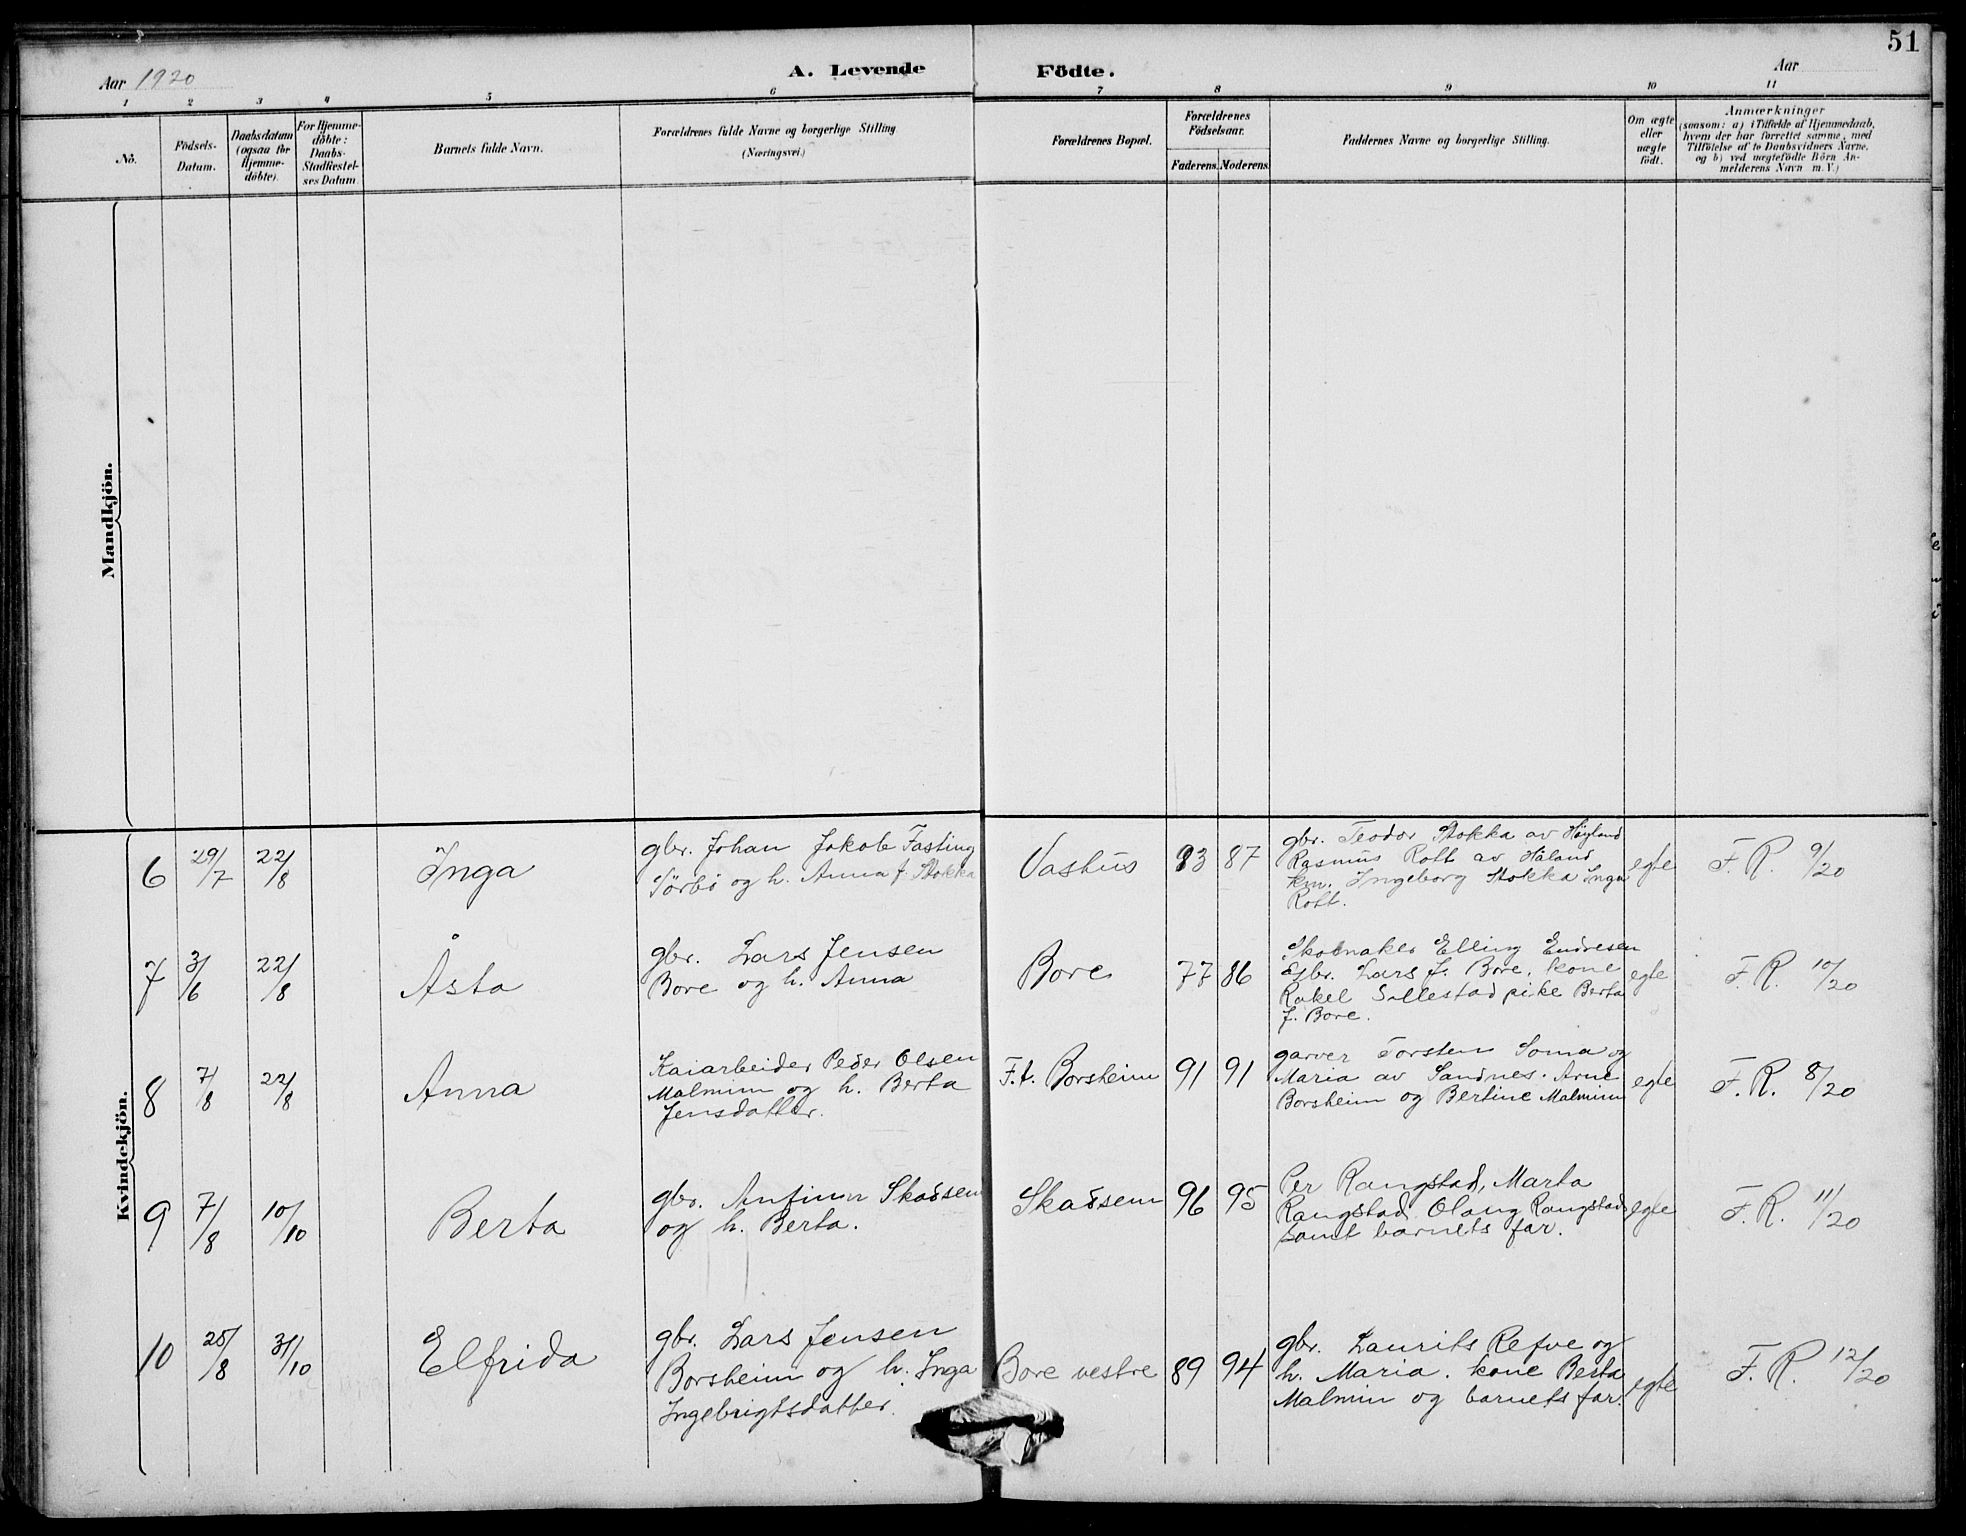 51
Aar 1920
A. Levende Födte.
Aar
1 2 3 4 5 6 7 8 9 10 11
No.
Födsels-
Datum.
Daabsdatum
(ogsaa for
Hjemme-
döbte).
For Hjemme-
döbte:
Daabs-
Stadfæstel-
ses Datum
Barnets fulde Navn.
Forældrenes fulde Navne og borgerlige Stilling
(Næringsvei.)
Forældrenes Bopæl.
Forældrenes
Födselsaar.
Faderens. Moderens.
Faddernes Navne og borgerlige Stilling.
Om ægte
eller
uægte
födt.
Anmærkninger
(saasom: a) i Tilfælde af Hjemmedaab,
hvem der har forrettet samme, med
Tilföielse af to Daabsvidners Navne,
og b) ved uægtefödte Börn An-
melderens Navn m. V.)
Mandkjön.
Kvindekjön.
6 29/7 22/8 Inga
gbr. Johan Jakob Fasting
Törbö og h. Anna f. Stokka
Vashus 83 87
gbr. Teodor Stokka av Høyland
Rasmus Rott av Håland
km. Ingeborg Stokka Inga
Rott.
egte F. R. 9/20
7 3/6 22/8 Åsta
gbr. Lars Jensen
Bore og h. Anna
Bore 77 86
Skomaker Elling Endresen
Gbr. Lars J. Bore, kone
Rakel Sellestad pike Berta
J. Bore.
egte F. R. 10/20
8 7/8 22/8 Anna
Kaiarbeider Peder Olsen
Malmin og h. Berta
Jensdatter.
F.t. Borsheim 91 91
garver Torsten Soma og
Maria av Sandnes. Arne
Borsheim og Bertine Malmin
egte F. R. 8/20
9 7/8 10/10 Berta
gbr. Antinn Skadsem
og h. Berta.
Skadsem 96 95
Per Rangstad, Marta
Rangstad Olaug Rangstad
samt barnets far.
egte F. R. 11/20
10 25/8 31/10 Elfrida
gbr. Lars Jensen
Borsheim og h. Inga
Ingebrigtsdatter.
Bore vestre 89 94
gbr. Laurits Refve og
h. Maria. kone Berta
Malmin og barnets far.
egte F. R. 12/20